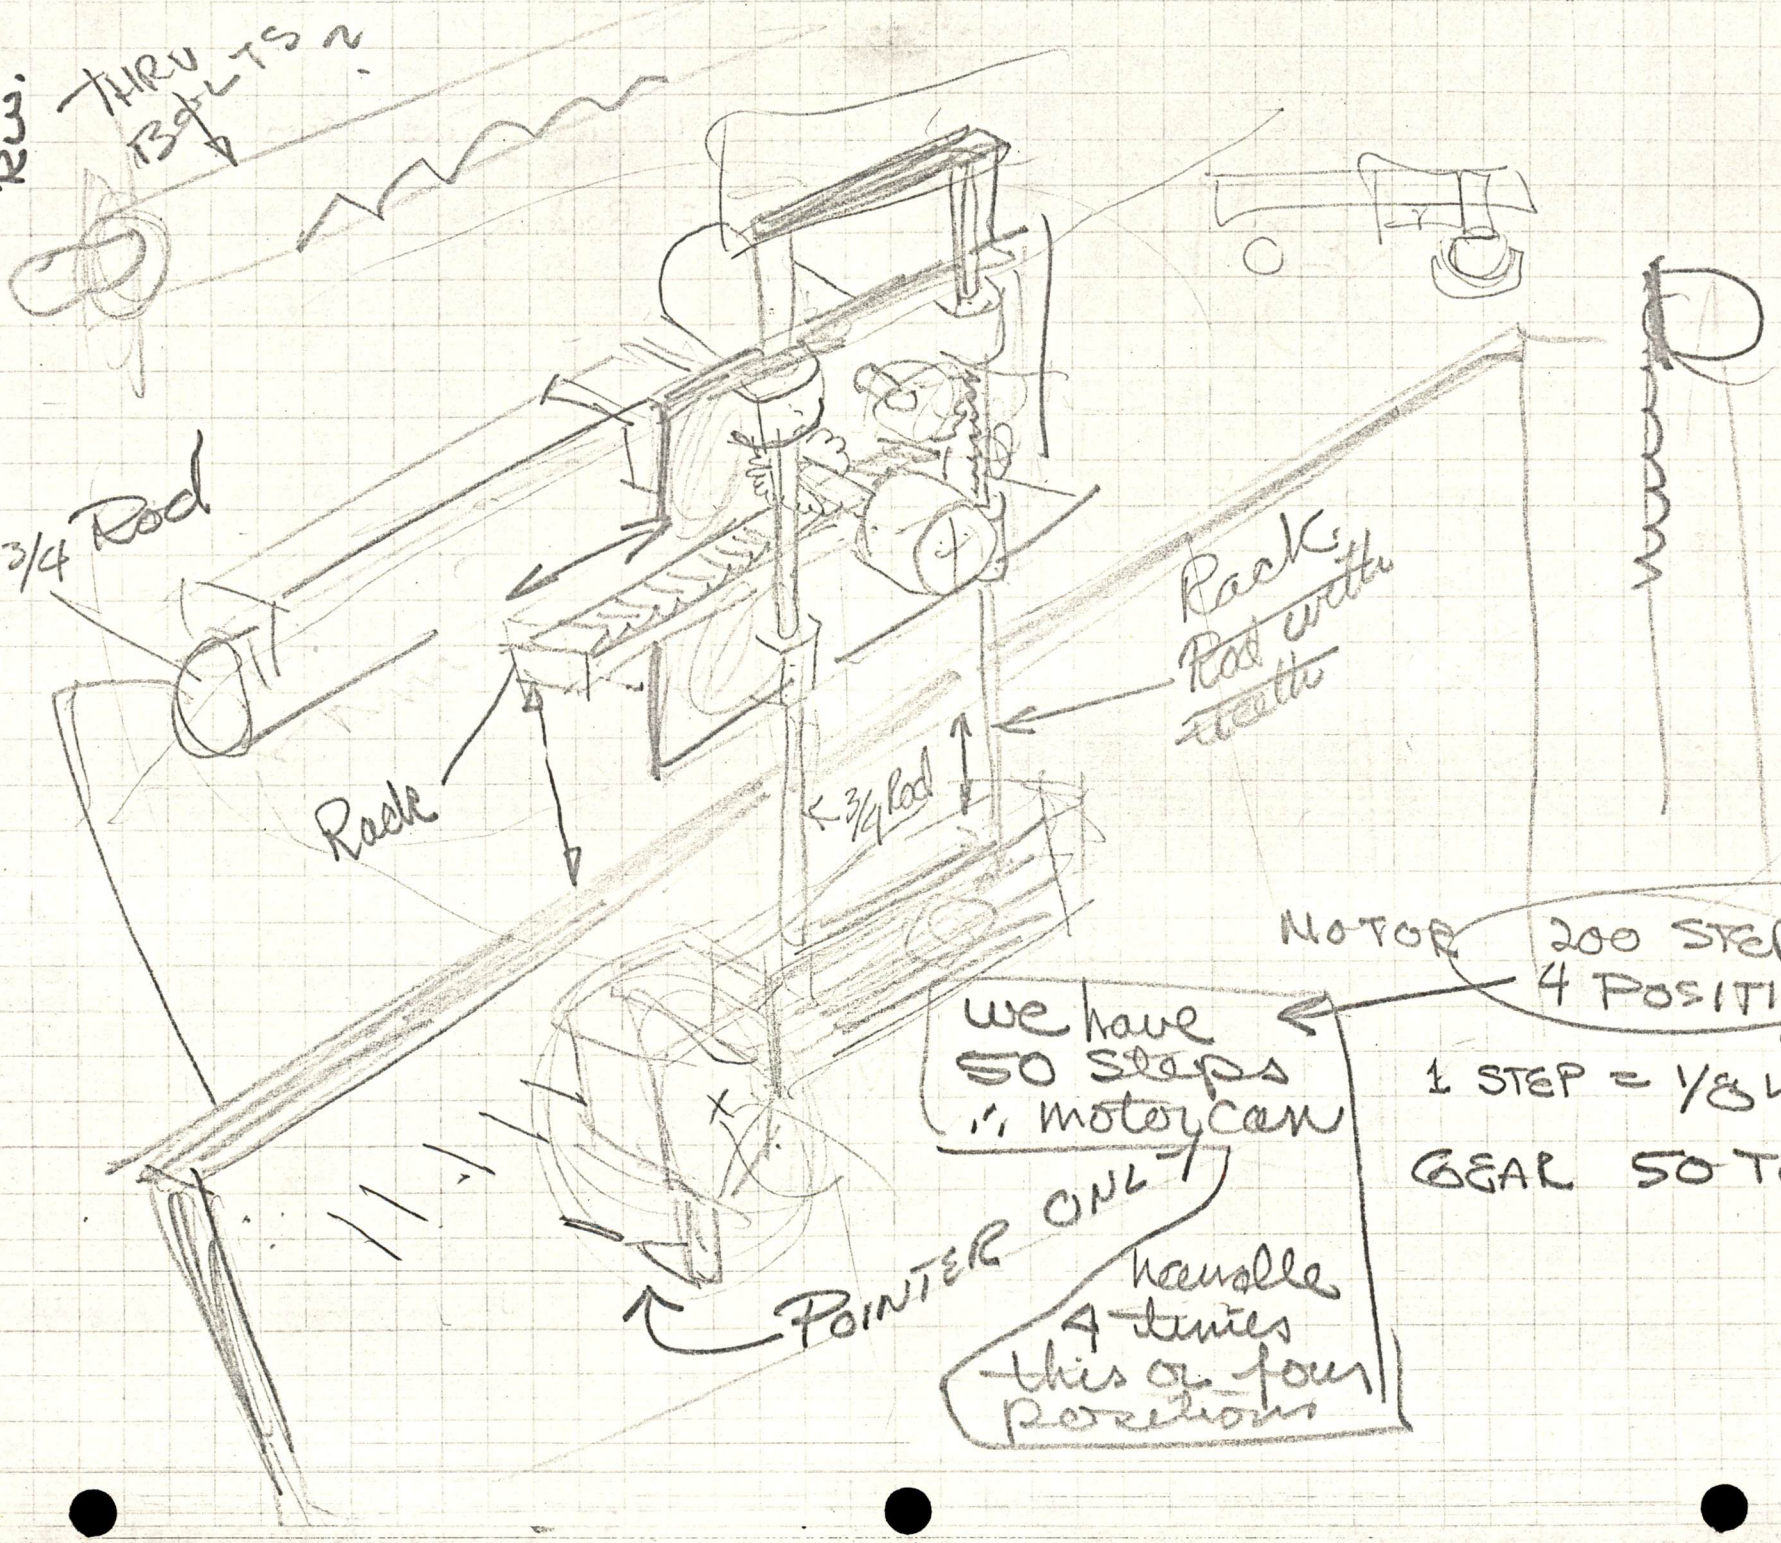 RW.
THRU
BOLTS ?
3/4 Rod
Rack
3/4 Rod
Rack
Rod with
teeth
MOTOR 200 STEP
4 POSITI
we have
50 steps
∴ motor can
1 STEP = 1/8
GEAR 50 T
POINTER ONLY
handle
4 times
this or four
positions